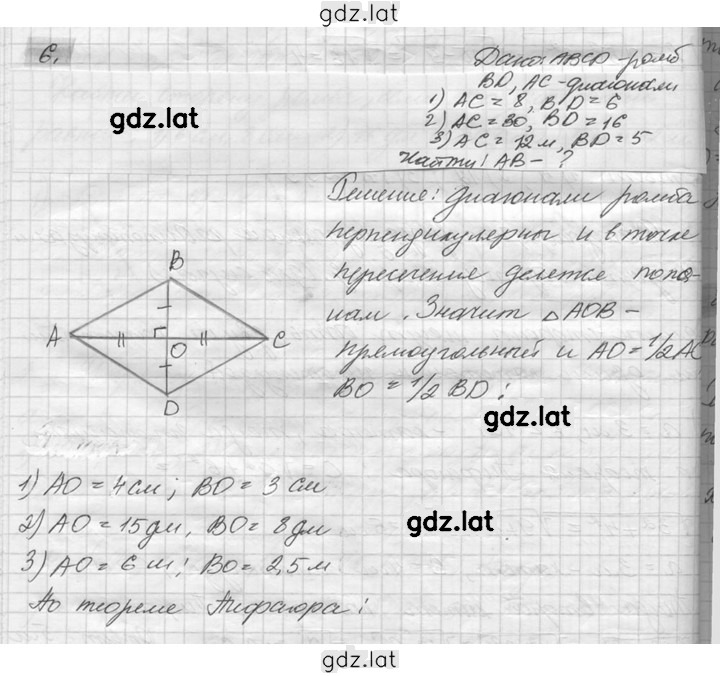 gdz.lat
6.
Дано: ABCD - ромб
BD, AC - диагонали
1) AC = 8, BD = 6
2) AC = 30, BD = 16
3) AC = 12 м, BD = 5
Найти: AB - ?
gdz.lat
Решение: диагонали ромба
перпендикулярны и в точке
пересечения делятся попо-
лам. Значит △AOB -
прямоугольный и AO = 1/2 AC
BO = 1/2 BD;
B
A
O
C
D
gdz.lat
1) AO = 4 см; BO = 3 см
2) AO = 15 дм, BO = 8 дм
gdz.lat
3) AO = 6 м; BO = 2,5 м
По теореме Пифагора:
gdz.lat